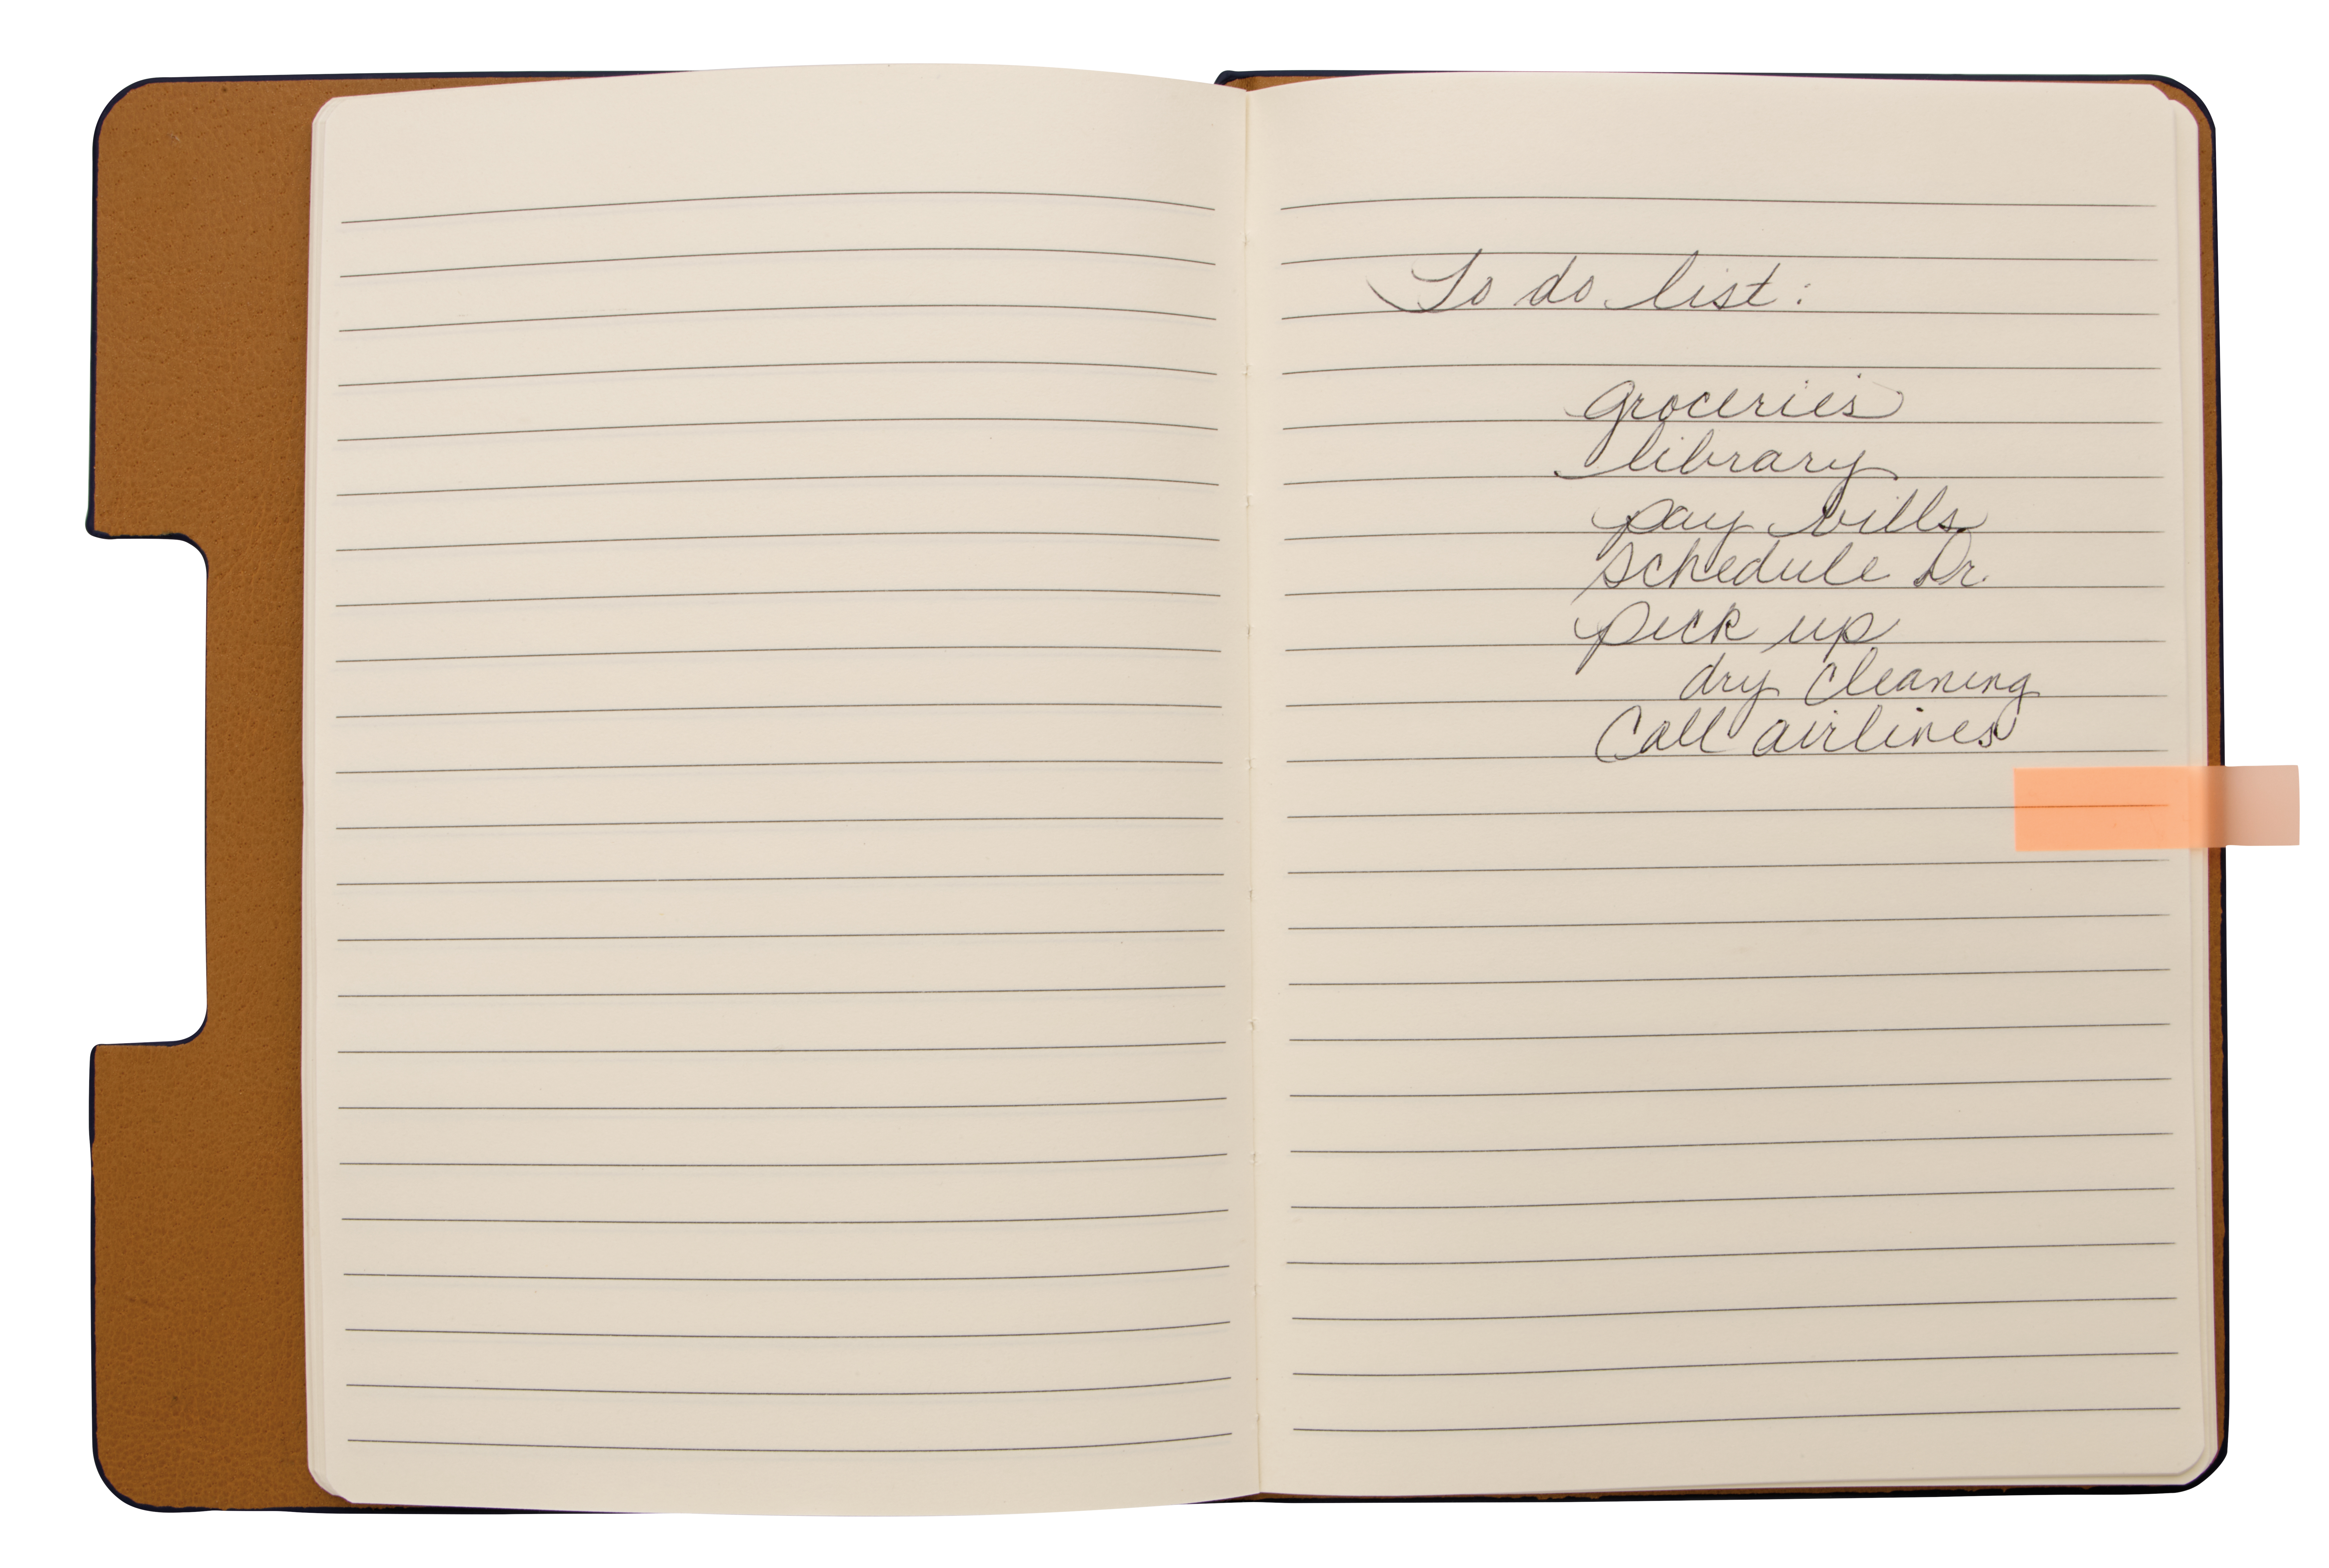 To do list:
groceries
library
pay bills
schedule Dr.
pick up
dry cleaning
Call airlines